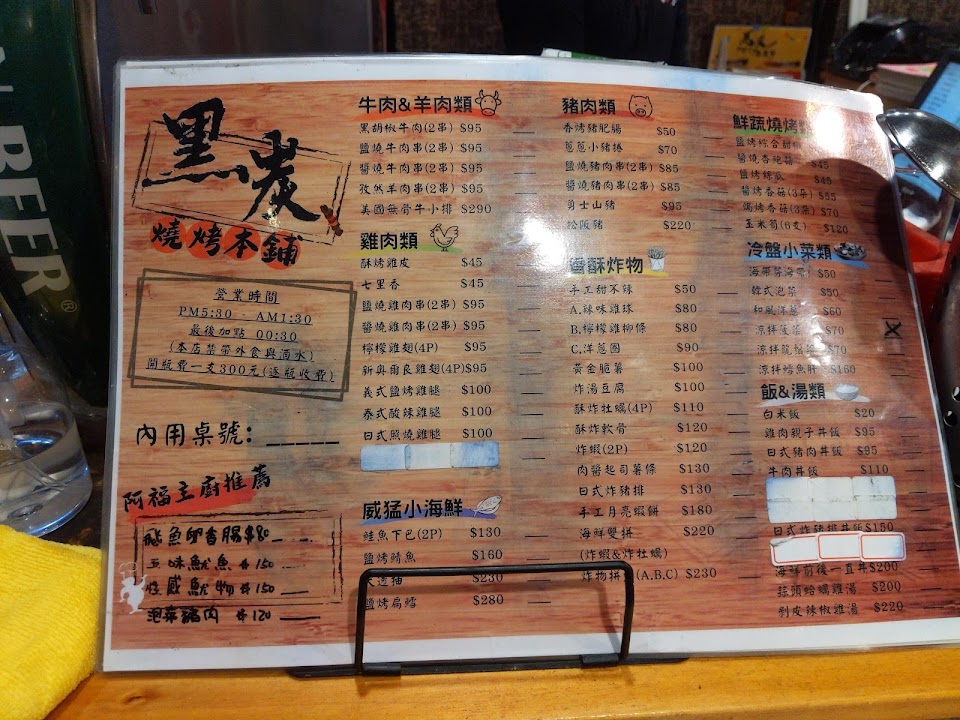 黑炭
燒烤本鋪
營業時間
PM5:30 - AM1:30
最後加點 00:30
(本店禁帶外食與酒水)
開瓶費一支300元(逐瓶收費)
內用桌號:
阿福主廚推薦
飛魚卵香腸 $80
五味魷魚 $150
魷物 $150
泡菜豬肉 $120
牛肉&羊肉類
黑胡椒牛肉(2串) $95
鹽燒牛肉串(2串) $95
醬燒牛肉串(2串) $95
孜然羊肉串(2串) $95
美國無骨牛小排 $290
雞肉類
酥烤雞皮 $45
七里香 $45
鹽燒雞肉串(2串) $95
醬燒雞肉串(2串) $95
檸檬雞翅(4P) $95
新奧爾良雞翅(4P)$95
義式鹽烤雞腿 $100
泰式酸辣雞腿 $100
日式照燒雞腿 $100
威猛小海鮮
鮭魚下巴(2P) $130
鹽烤鯖魚 $160
大透抽 $230
鹽烤扁鱈 $280
豬肉類
香烤豬肥腸 $50
蔥蔥小豬捲 $70
鹽燒豬肉串(2串) $85
醬燒豬肉串(2串) $85
勇士山豬 $95
松阪豬 $220
香酥炸物
手工甜不辣 $50
A.辣味雞球 $80
B.檸檬雞柳條 $80
C.洋蔥圈 $90
黃金脆薯 $100
炸湯豆腐 $100
酥炸牡蠣(4P) $110
酥炸軟骨 $120
炸蝦(2P) $120
肉醬起司薯條 $130
日式炸豬排 $130
手工月亮蝦餅 $180
海鮮雙拼 $220
(炸蝦&炸牡蠣)
炸物拼 (A.B.C) $230
鮮蔬燒烤
鹽烤綜合甜椒
醬燒杏鮑菇 $45
鹽烤絲瓜 $45
醬烤香菇(3朵) $55
焗烤香菇(3朵) $70
玉米筍(6支) $120
冷盤小菜類
海帶芽海帶 $50
韓式泡菜 $50
和風洋蔥 $60
涼拌菠菜 $70
涼拌龍鬚菜 $70
涼拌鱈魚肝 $160
飯&湯類
白米飯 $20
雞肉親子丼飯 $95
日式豬肉丼飯 $95
牛肉丼飯 $110
日式炸豬排丼飯$150
海鮮前後一直丼$200
蒜頭蛤蠣雞湯 $200
剝皮辣椒雞湯 $220
BEER